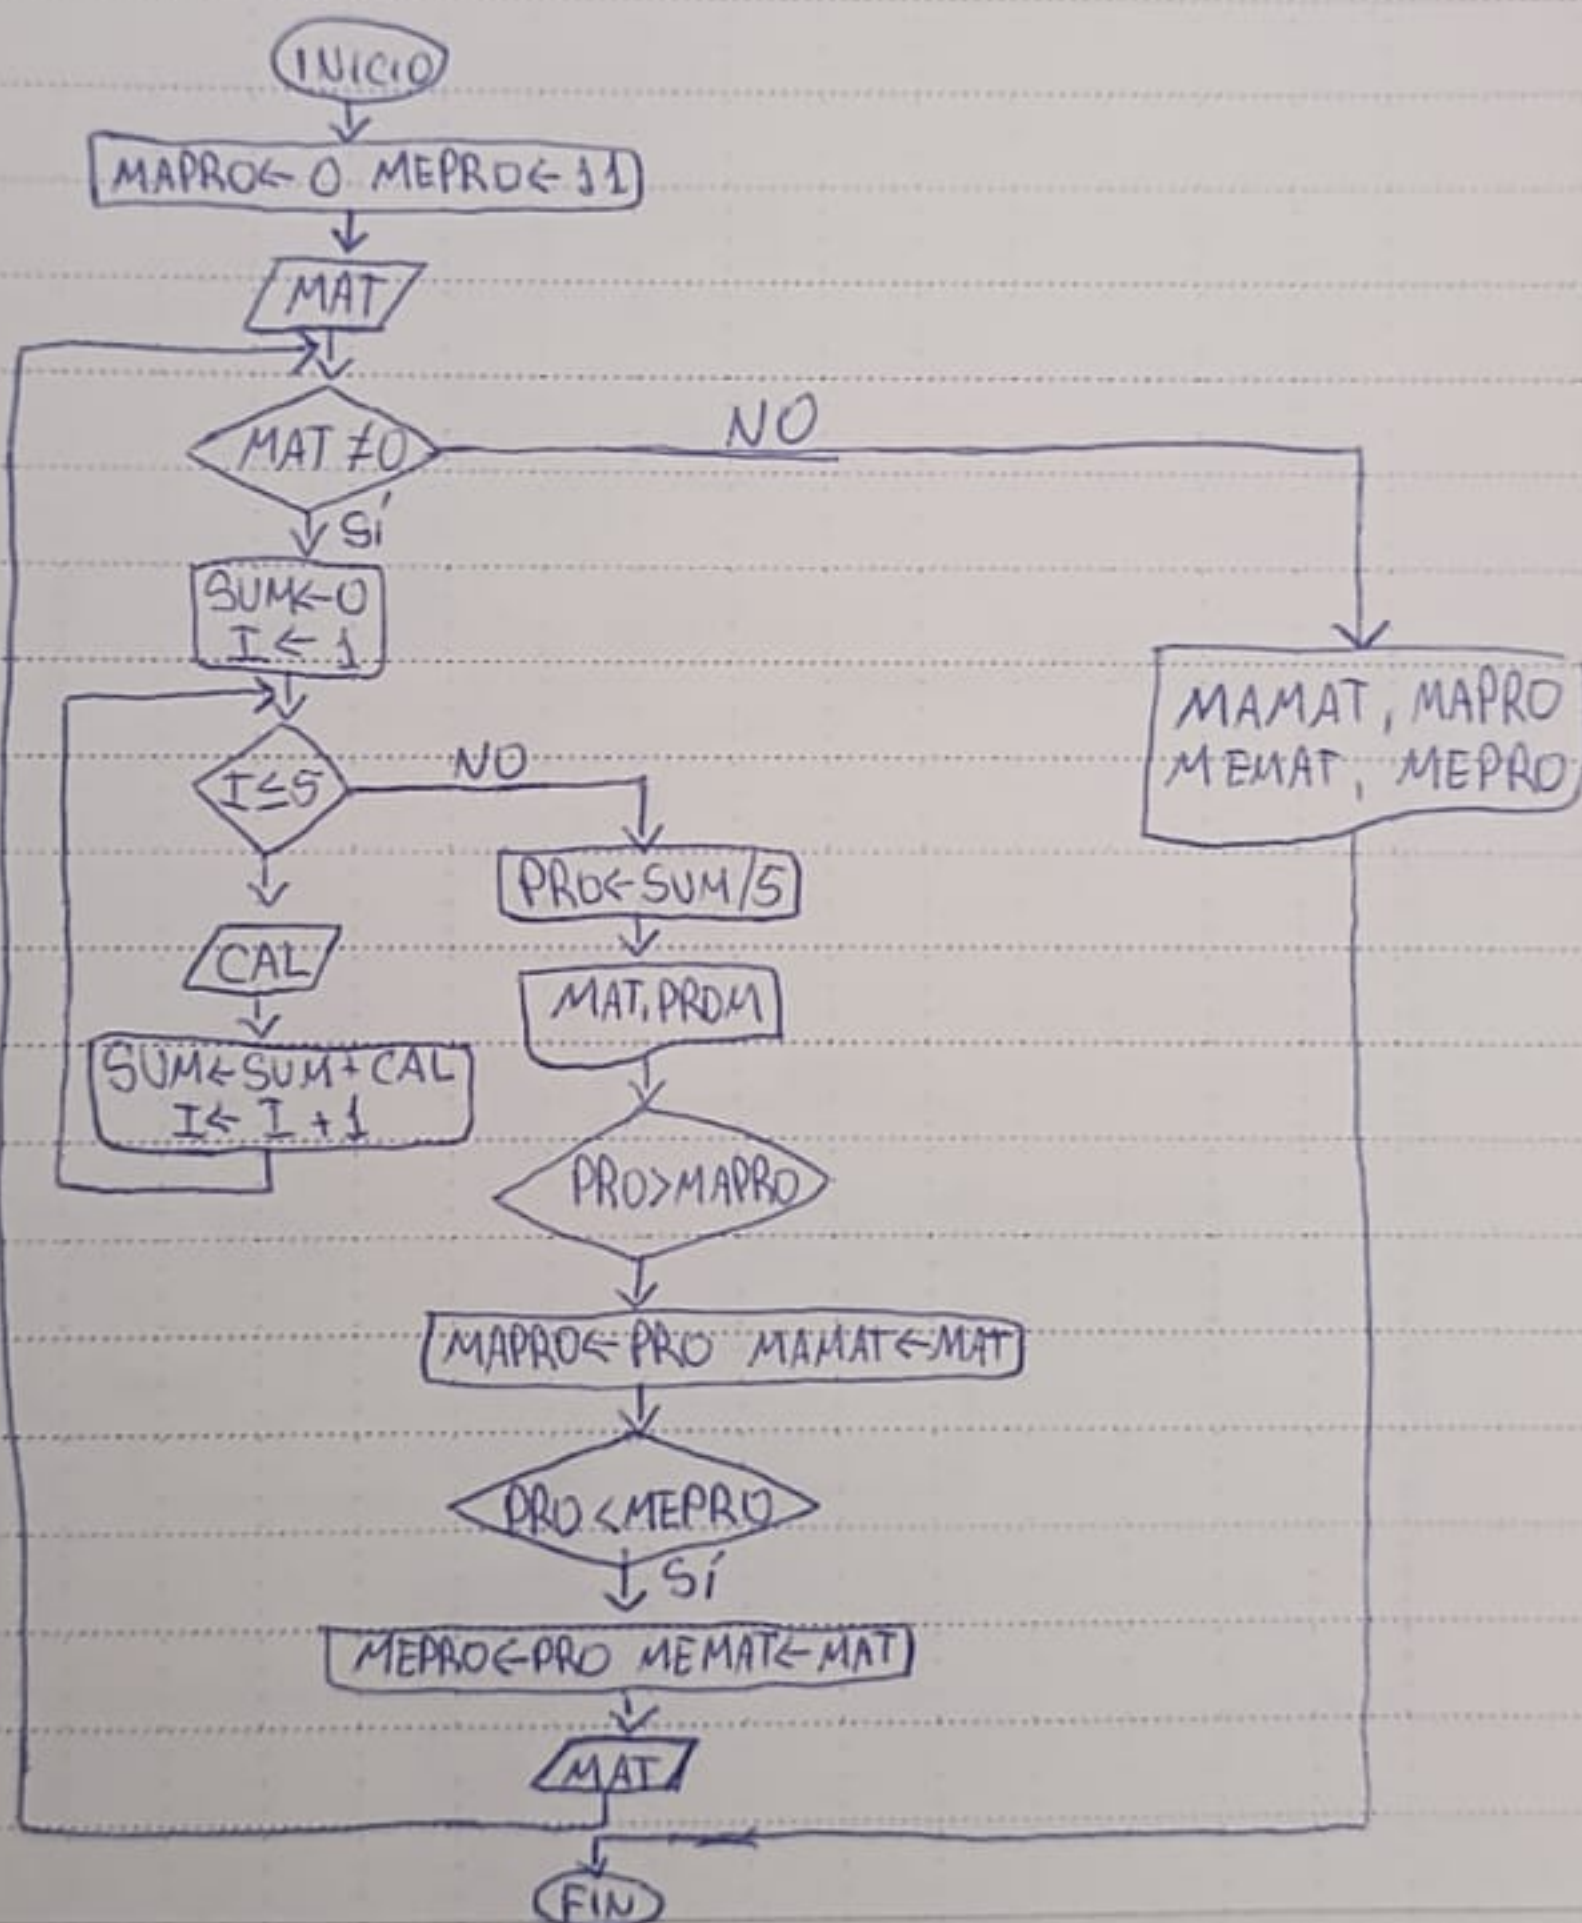 INICIO
MAPRO←0 MEPRO←11
MAT
MAT≠0
NO
SÍ
SUM←0
I←1
I≤5
NO
CAL
SUM←SUM+CAL
I←I+1
PRO←SUM/5
MAT,PROM
PRO>MAPRO
MAPRO←PRO MAMAT←MAT
PRO<MEPRO
SÍ
MEPRO←PRO MEMAT←MAT
MAT
MAMAT, MAPRO
MEMAT, MEPRO
FIN